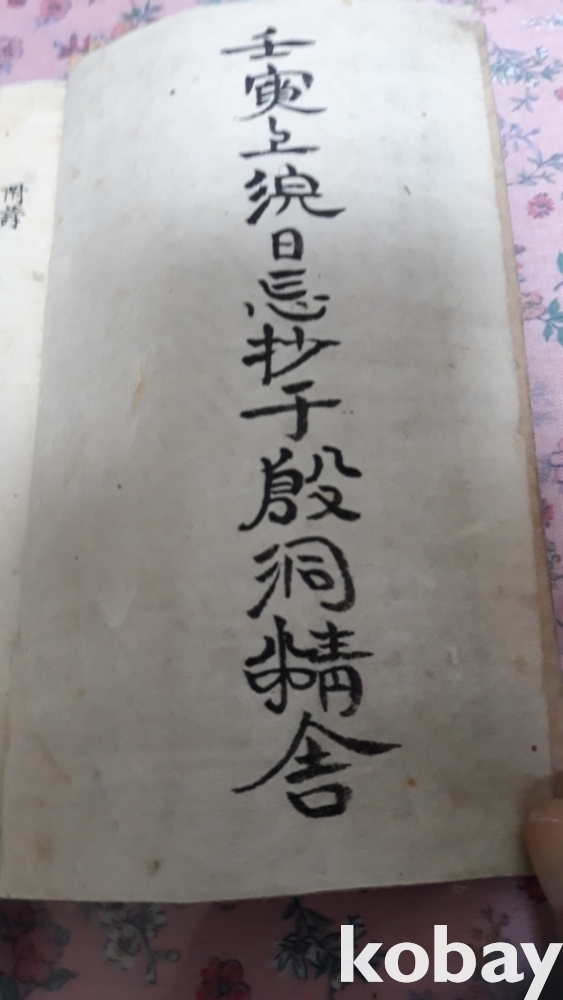 壬寅上浣日忘抄于殷洞精舍
附
kobay